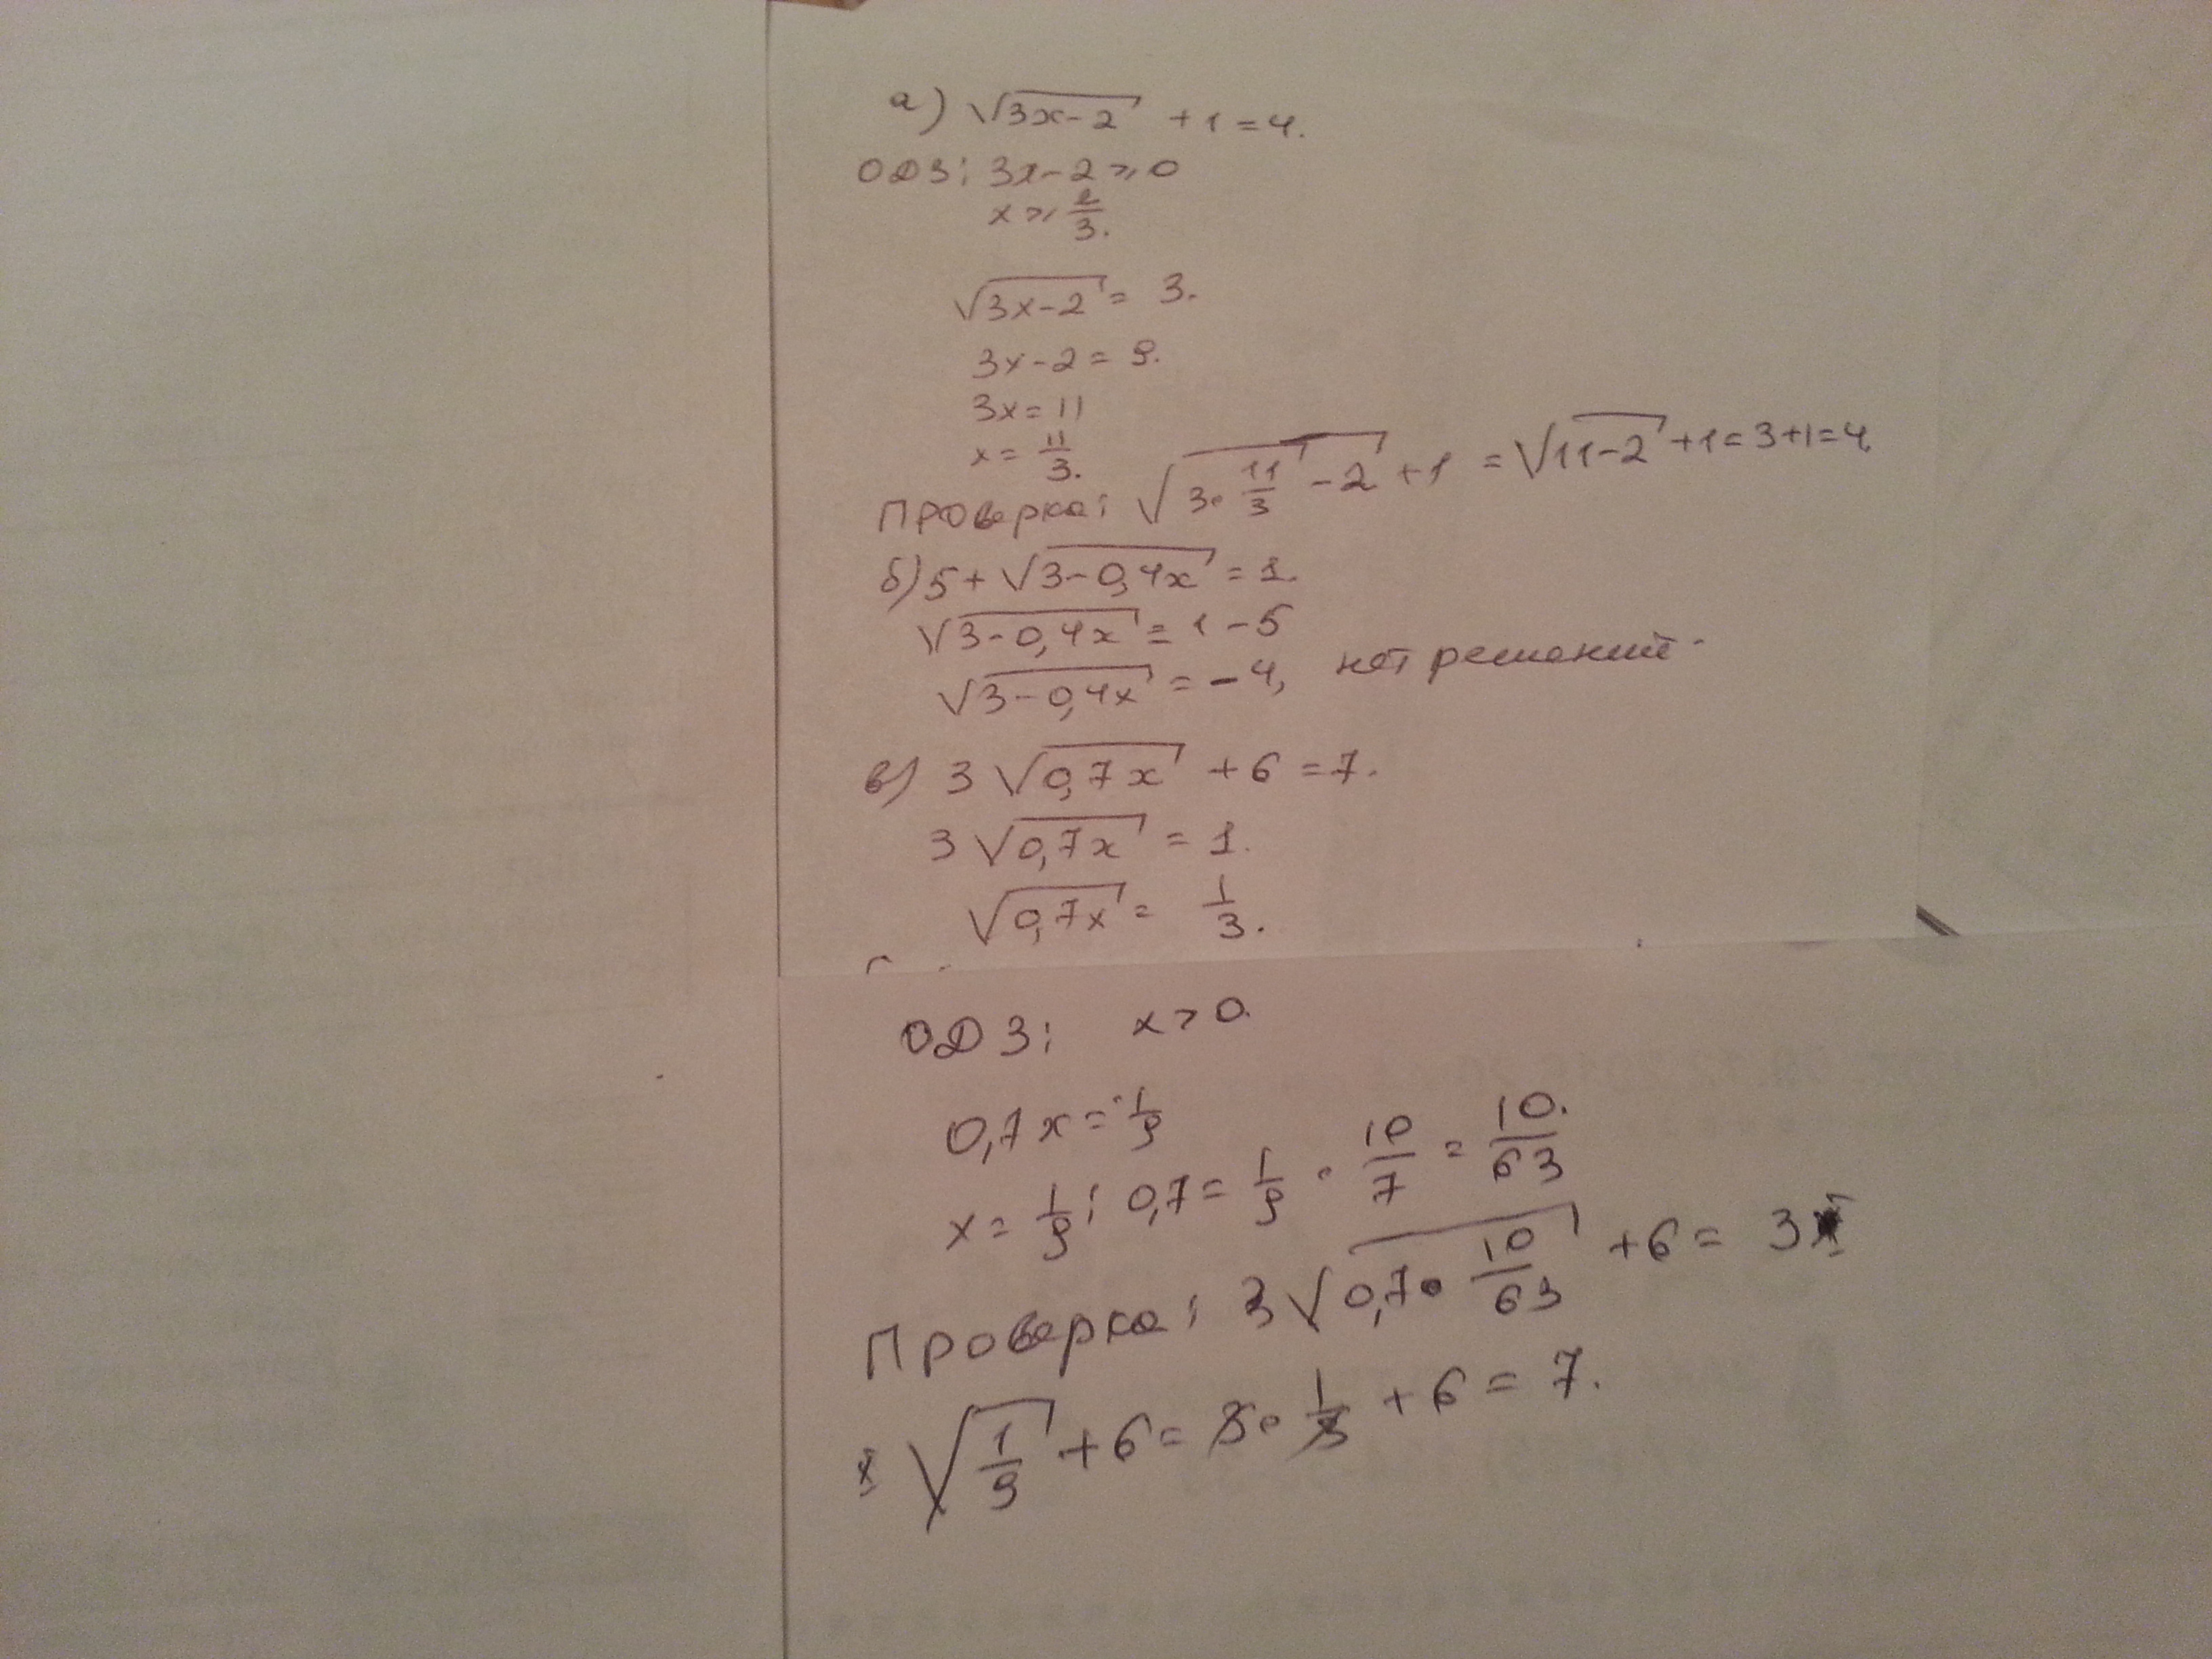 а) √(3x-2) + 1 = 4.
ОДЗ: 3x-2 ≥ 0
x ≥ 2/3.
√(3x-2) = 3.
3x-2 = 9.
3x = 11
x = 11/3.
Проверка: √(3·11/3 -2) + 1 = √(11-2) + 1 = 3+1 = 4
б) 5 + √(3-0,4x) = 1.
√(3-0,4x) = 1 - 5
√(3-0,4x) = -4, нет решений.
в) 3√(0,7x) + 6 = 7.
3√(0,7x) = 1.
√(0,7x) = 1/3.
ОДЗ: x > 0.
0,7x = 1/9
x = 1/9 : 0,7 = 1/9 · 10/7 = 10/63.
Проверка: 3√(0,7·10/63) + 6 = 3
√(1/9) + 6 = 3·1/3 + 6 = 7.